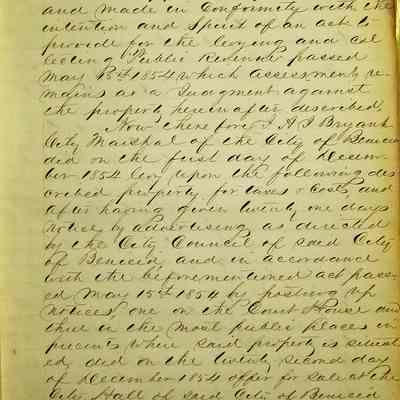 and made in conformity with the
intention and spirit of an act to
provide for the levying and col
lecting Public Revenue passed
May 15th 1854 which assessment re-
mains as a Judgment against
the property herein after described,
Now therefore I A J Bryant
City Marshal of the City of Benicia
did on the first day of Decem-
ber 1854 levy upon the following des
cribed property for taxes & Costs and
after having given twenty one days
notice by advertising as directed
by the City Council of said City
of Benicia and in accordance
with the beforementioned act pass-
ed May 15th 1854 by posting up
notices one on the Court House and
three in the most public places in
precincts where said property is situat
ed, did on the twenty second day
of December 1854 offer for sale at the
City Hall of said City of Benicia